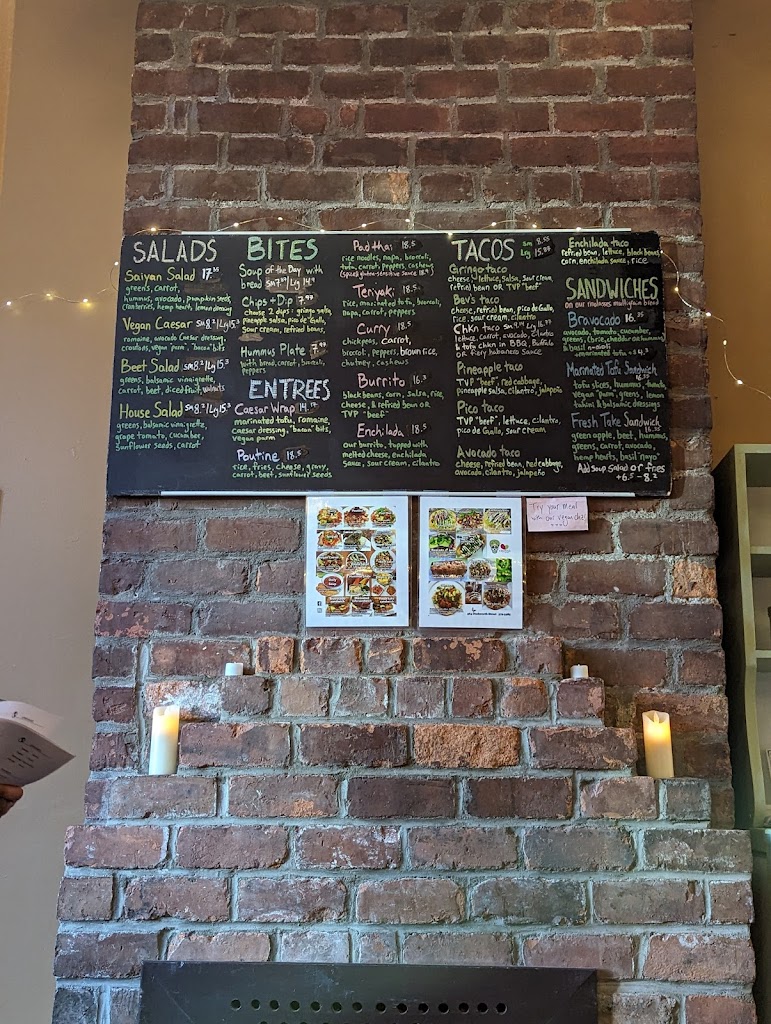 SALADS
Saiyan Salad 17.35
greens, carrot,
hummus, avocado, pumpkin seeds,
cranberries, hemp hearts, lemon dressing
Vegan Caesar sm8.2/Lg15.3
romaine, avocado Caesar dressing,
croutons, vegan "parm", "bacon" bits
Beet Salad sm8.2/Lg15.3
greens, balsamic vinaigrette,
carrot, beet, diced fruit, walnuts
House Salad sm8.2/Lg15.3
greens, balsamic vinaigrette,
grape tomato, cucumber,
sunflower seeds, carrot
BITES
Soup of the Day with
bread
Chips + Dip 7.99
choose 2 dips: gringo salsa,
pineapple salsa, pico de Gallo,
sour cream, refried beans
Hummus Plate 7.99
with bread, carrot, broccoli,
peppers
ENTREES
Caesar Wrap
marinated tofu, romaine,
Caesar dressing, "bacon" bits,
vegan parm
Poutine 18.5
rice, fries, cheese, gravy,
carrot, beet, sunflower seeds
Pad thai 18.5
rice noodles, napa, broccoli,
tofu, carrot, peppers, cashews
Teriyaki 18.5
rice, marinated tofu, broccoli,
napa, carrot, peppers
Curry 18.5
chickpeas, carrot,
broccoli, peppers, brown rice,
chutney, cashews
Burrito
black beans, corn, salsa, rice,
cheese, & refried bean OR
TVP "beef"
Enchilada 18.5
our burrito, topped with
melted cheese, enchilada
sauce, sour cream, cilantro
TACOS sm 8.55
Lrg 15.88
Gringo taco
cheese, lettuce, salsa, sour cream,
refried bean OR TVP "beef"
Bev's taco
cheese, refried bean, pico de Gallo,
rice, sour cream, cilantro
Chkn taco
lettuce, carrot, avocado, cilantro
& tofu chkn in BBQ, Buffalo
or fiery habanero sauce
Pineapple taco
TVP "beef", red cabbage,
pineapple salsa, cilantro, jalapeño
Pico taco
TVP "beef", lettuce, cilantro,
pico de Gallo, sour cream
Avocado taco
cheese, refried bean, red cabbage,
avocado, cilantro, jalapeño
Enchilada taco
refried bean, lettuce, black beans
corn, enchilada sauce, rice
SANDWICHES
on our molasses multigrain bread
Bravocado 16.35
avocado, tomato, cucumber,
greens, chrze, cheddar or hummus
& basil mayo
+marinated tofu +
Marinated Tofu Sandwich
16.35
tofu slices, hummus, tomato,
vegan "parm", greens, lemon
tahini & balsamic dressings
Fresh Take Sandwich
16.35
green apple, beet, hummus,
greens, carrot, avocado,
hemp hearts, basil mayo
Add Soup Salad or fries
+6.5 - 8.2
Try your meal
with our vegan